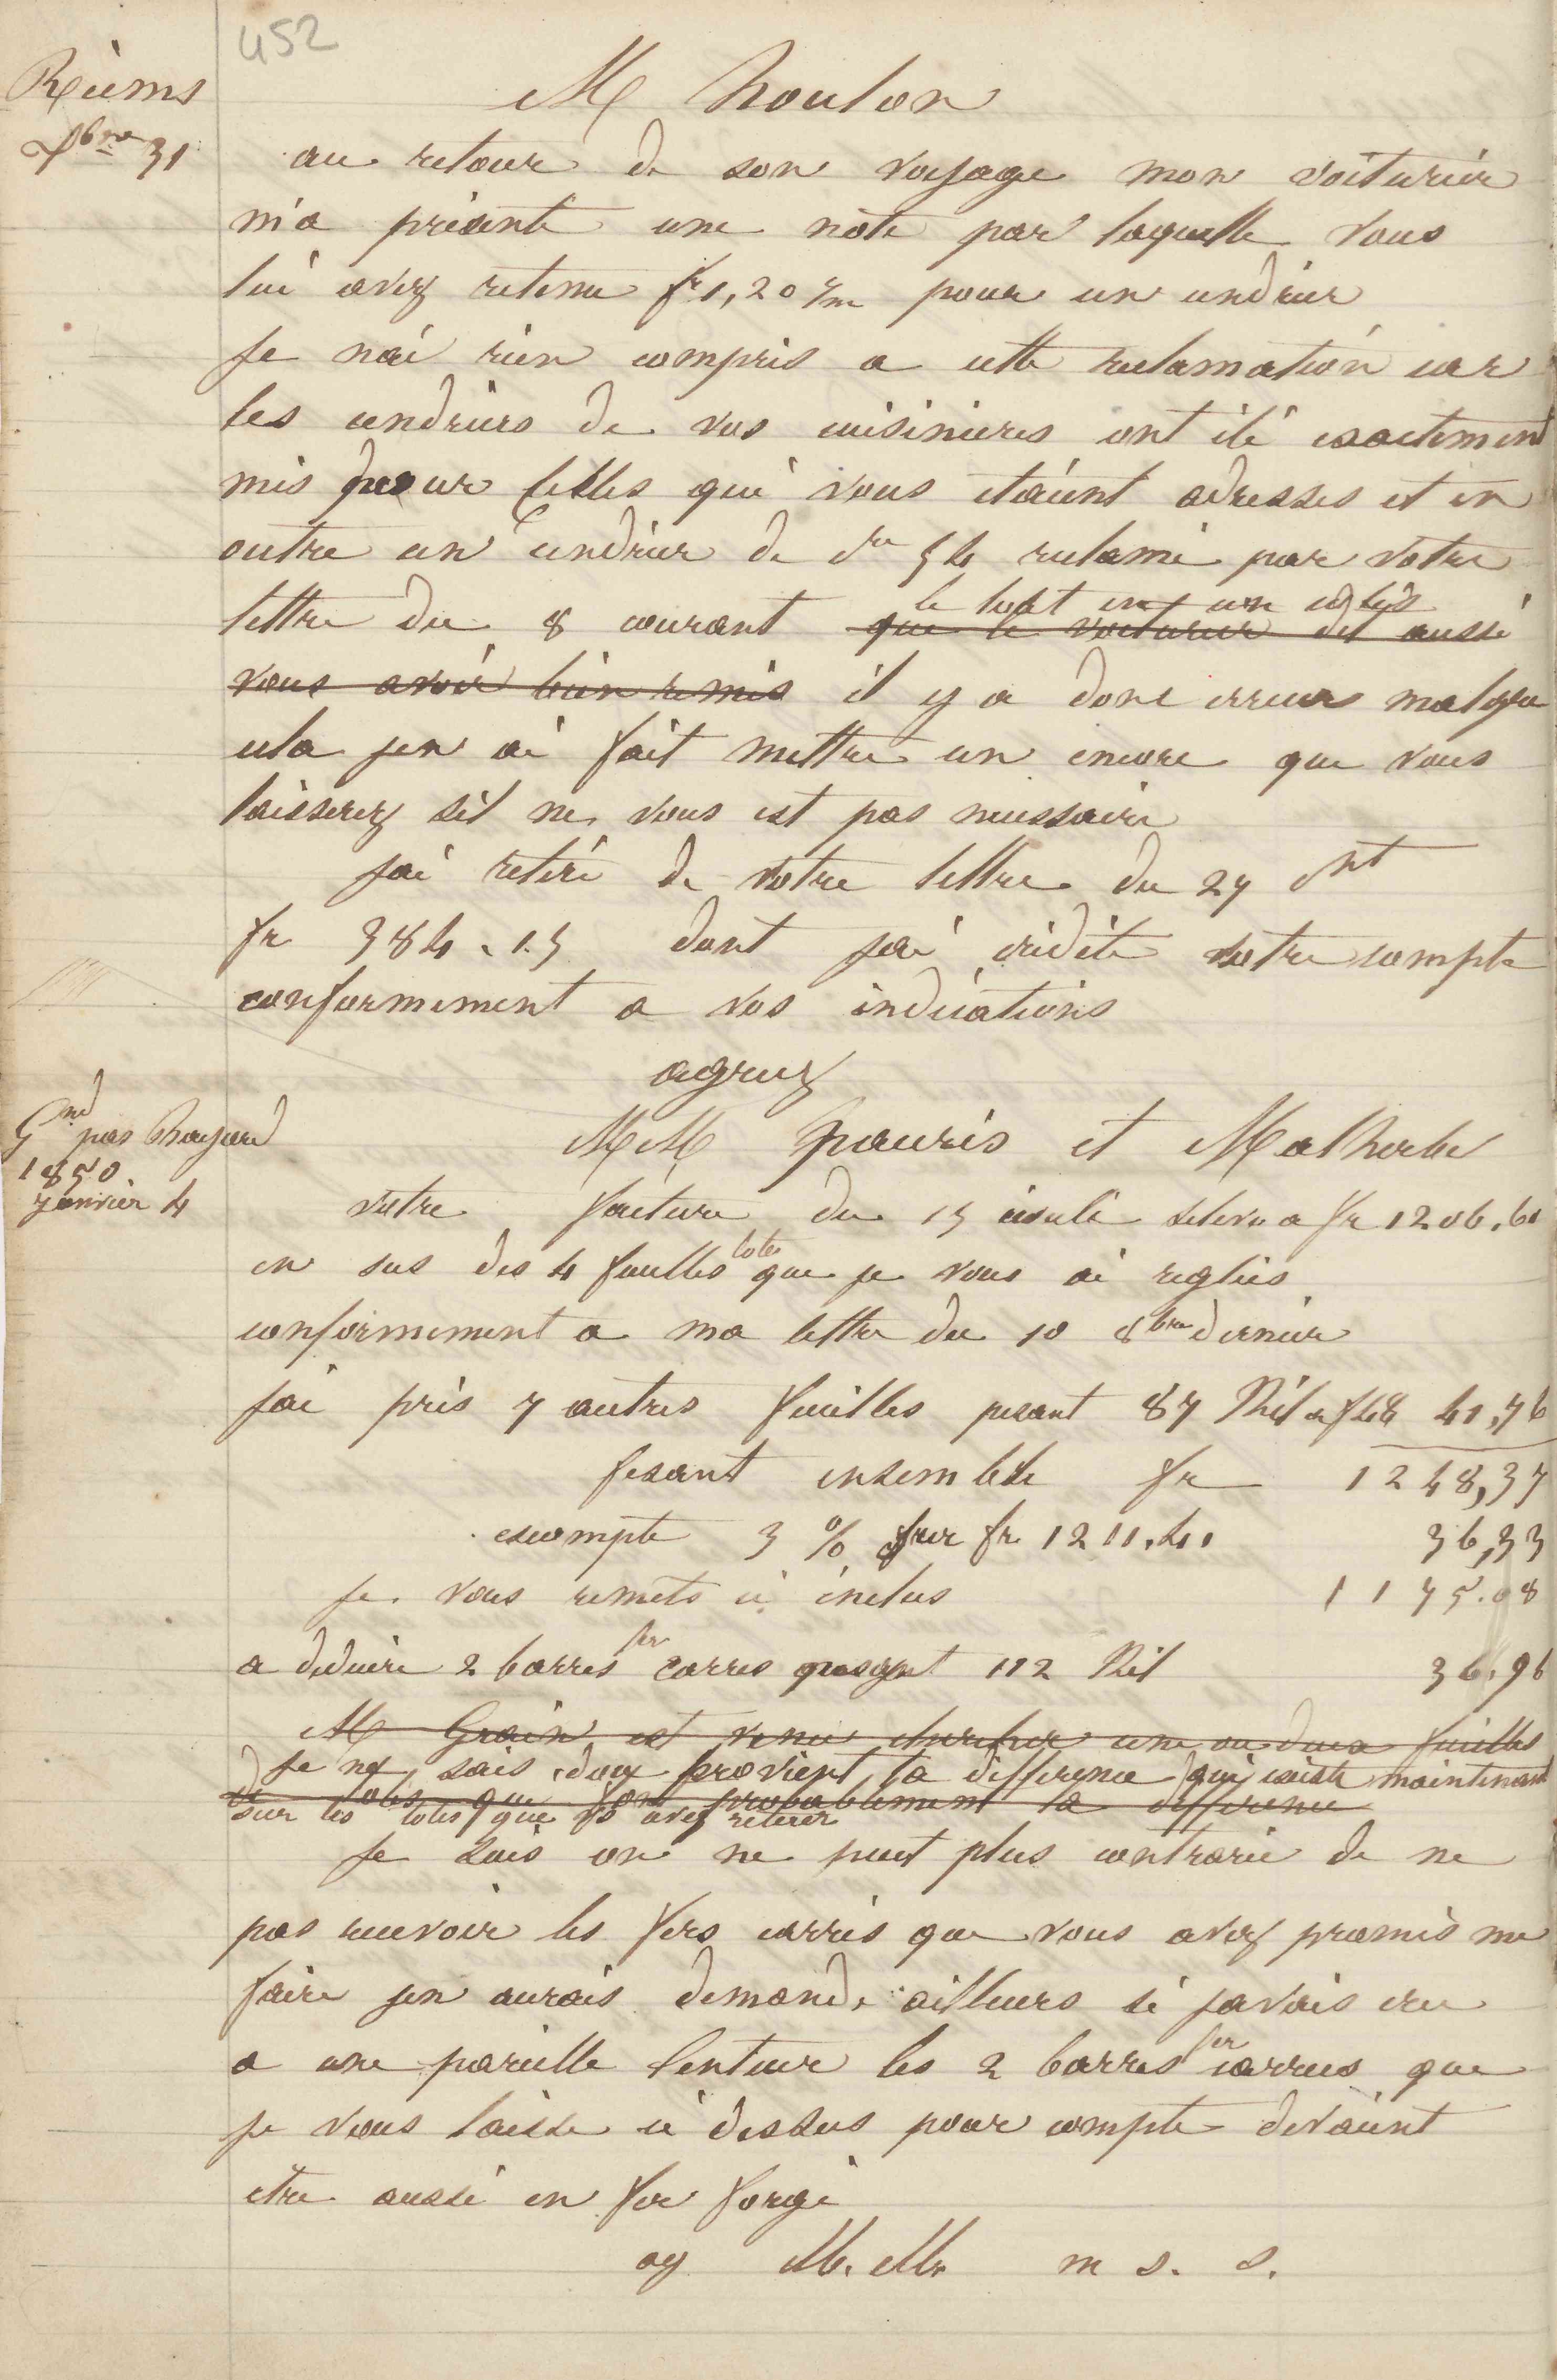 452
Reims
Xbre 31
M Houlon
au retour de son voyage mon voiturier
m'a présenté une note par laquelle vous
lui avez retenu fr 1,20 c/m pour un cendrier
Je n'ai rien compris a cette reclamation car
les cendriers de vos cuisinieres ont été exactement
mis pour celles qui vous étaient adresses et en
outre un cendrier de No 54 reclamé par votre
le tout en un colis
lettre du 8 courant que le voiturier dit aussi
vous avoir bien remis il y a donc erreur malgre
cela jen ai fait mettre un encore que vous
laisserez sil ne vous est pas necessaire
jai retiré de votre lettre du 27 Ct
fr 384.15 dont jai crédité votre compte
conformement a vos indications
agreez
Gnd pas Bayard
1850
Janvier 4
MM Gauvis et Malherbe
votre facture du 15 écoulé seleve a fr 1206.61
en sus des 4 feuilles toles que je vous ai reglées
conformement a ma lettre du 10 8bre dernier
jai pris 7 autres feuilles pesant 87 Kil a f 48 41,76
fesant ensemble fr 1248,37
escompte 3 % sur fr 1211.41 36,33
Je vous remets ci inclus 1175.08
a deduire 2 barres fer carres pesant 112 Kil 36.96
M Grain est venu chercher une ou deux feuilles
Je ne sais doux provient la difference qui existe maintenant
de toles que font probablement la difference
sur les toles que vs avez retirer
Je suis on ne peut plus contrarié de ne
pas recevoir les fers carrés que vous avez promis me
faire jen aurais demandé ailleurs si javais cru
a une pareille lenteur les 2 barres fer carrees que
je vous laisse ci dessus pour compte devaient
etre aussi en fer forgé
ag M. M. m s. s.